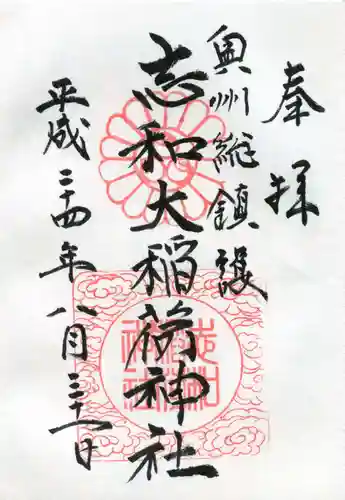 奉拝
奥州総鎮護
志和大稲荷神社
平成二十四年八月三十一日